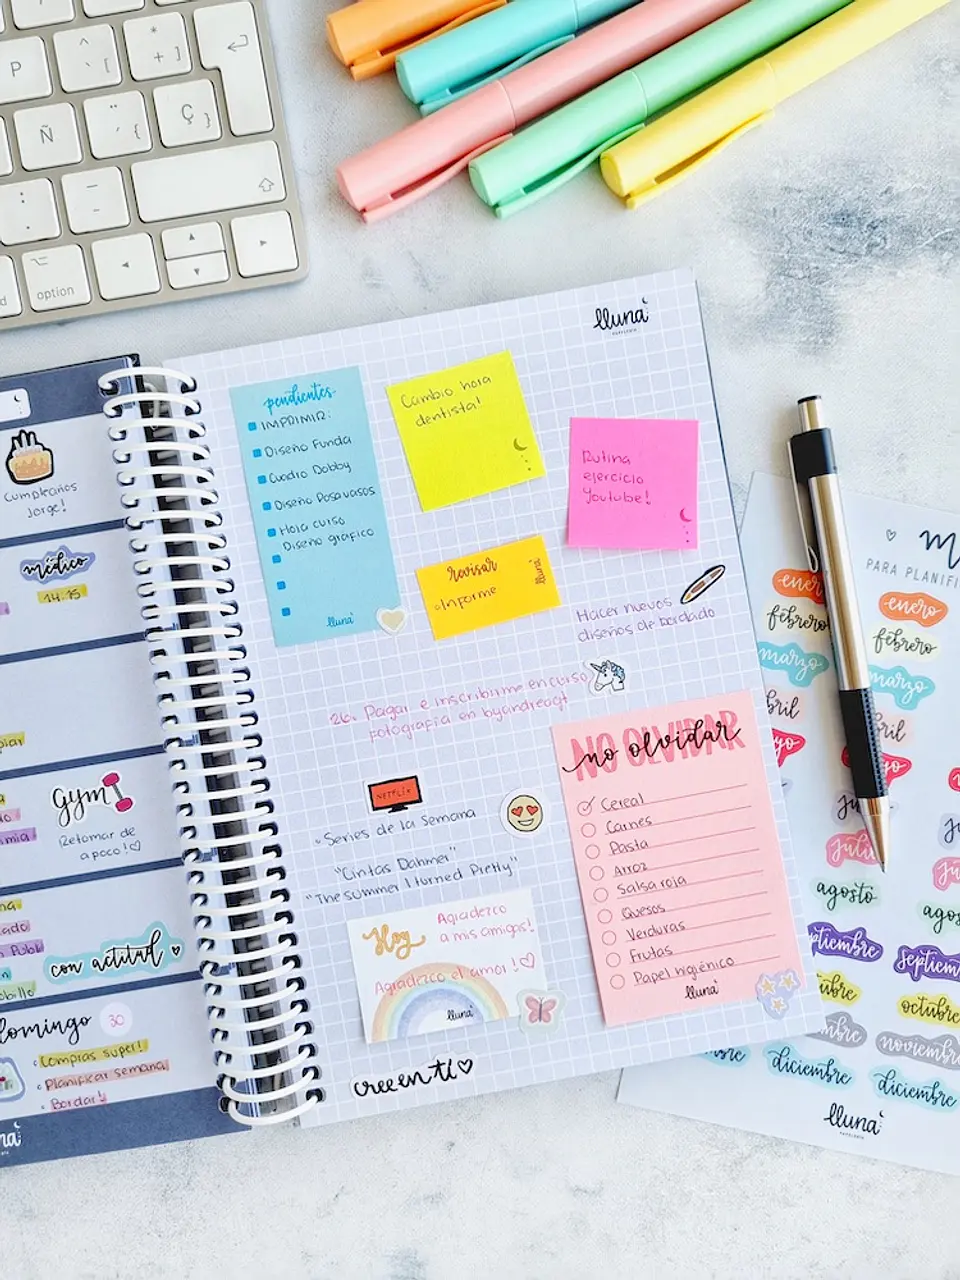 P
^ [
* + ]
Ñ
¨ ´ {
Ç }
: .
_ -
option
lluna
PAPELERIA
pendientes
IMPRIMIR:
Diseño Funda
Cuadro Dobby
Diseño Posavasos
Hola curso
Diseño gráfico
lluna
Cambio hora
dentista!
Rutina
ejercicio
Youtube!
revisar
Informe
lluna
Hacer nuevos
diseños de bordado
26. Pagar e inscribirme en curso
fotografía en byandreagt
NETFLIX
Series de la Semana
"Cintas Dahmer"
"The summer I turned Pretty"
Hoy
Agradezco
a mis amigos!
Agradezco el amor!
lluna
NO OLVIDAR
no olvidar
Cereal
Carnes
Pasta
Arroz
Salsa roja
Quesos
Verduras
Frutas
Papel higiénico
lluna
cree en ti
Cumpleaños
Jorge!
médico
14:15
gym
Retomar de
a poco!
con actitud
domingo 30
Compras super!
Planificar semana
Bordar!
PARA PLANIFI
enero
febrero
marzo
bril
yo
juli
agosto
septiembre
ubre
mbre
diciembre
enero
febrero
marzo
bril
septiem
octubre
noviembre
diciembre
lluna
PAPELERIA